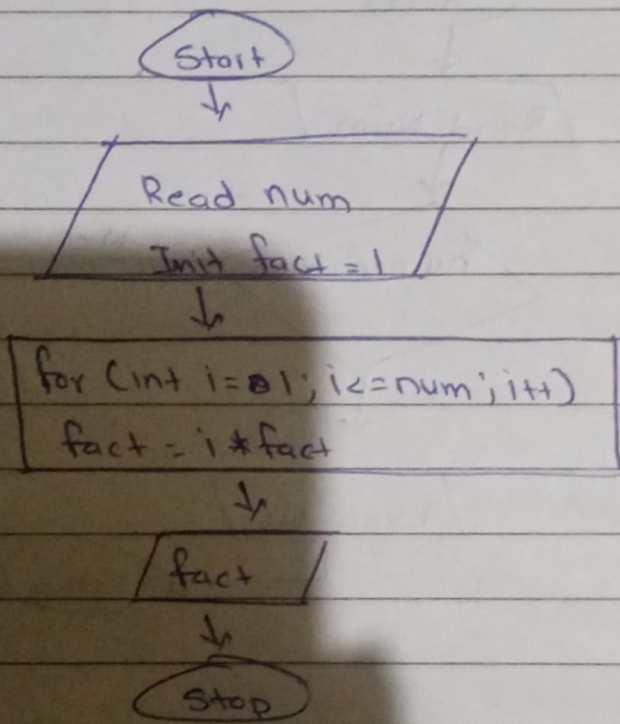 Start
Read num
Init fact = 1
for (int i = 1; i <= num; i++)
fact = i * fact
fact
Stop